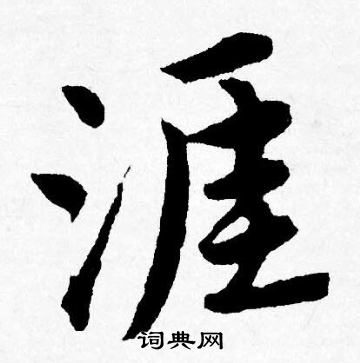 涯
词典网